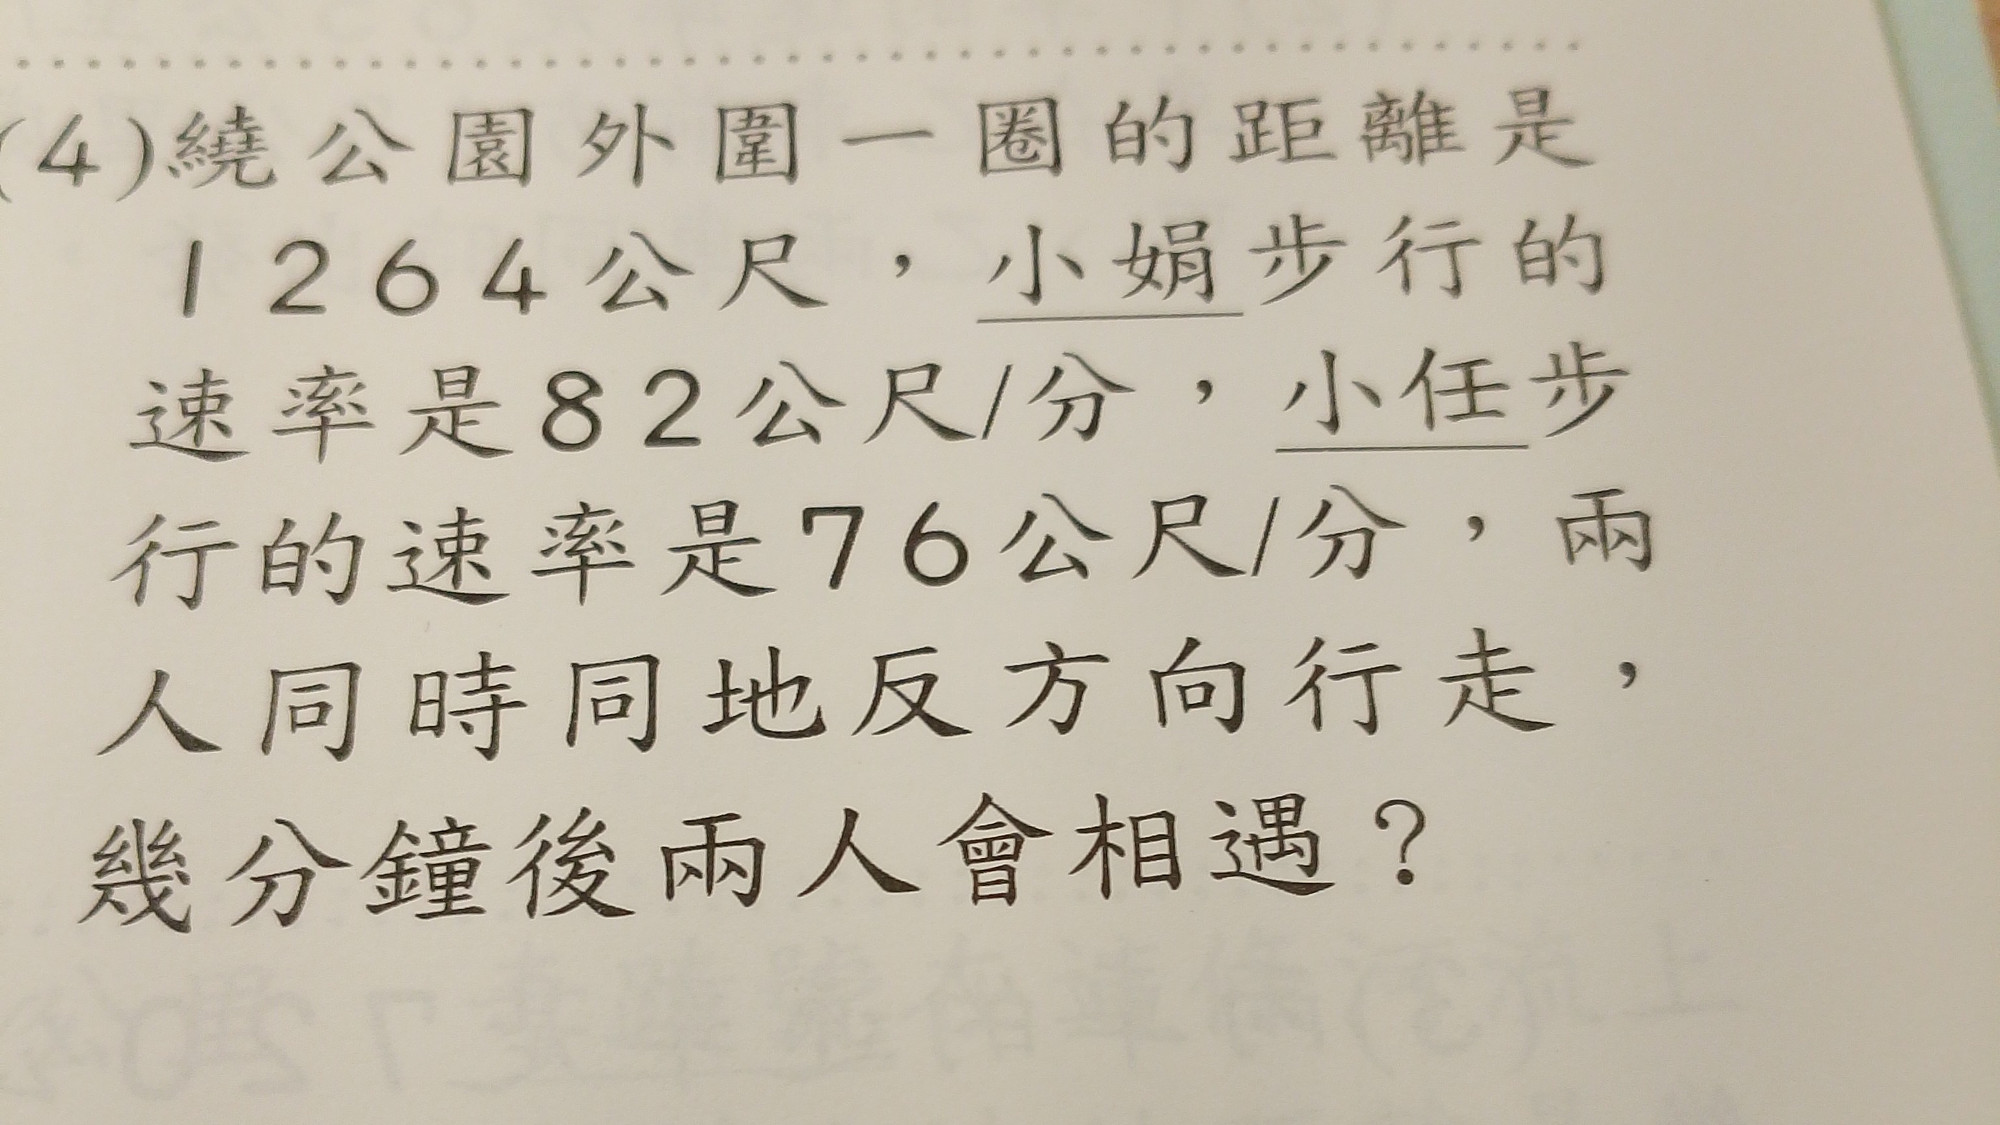 (4)繞公園外圍一圈的距離是
1264公尺，小娟步行的
速率是82公尺/分，小任步
行的速率是76公尺/分，兩
人同時同地反方向行走，
幾分鐘後兩人會相遇？